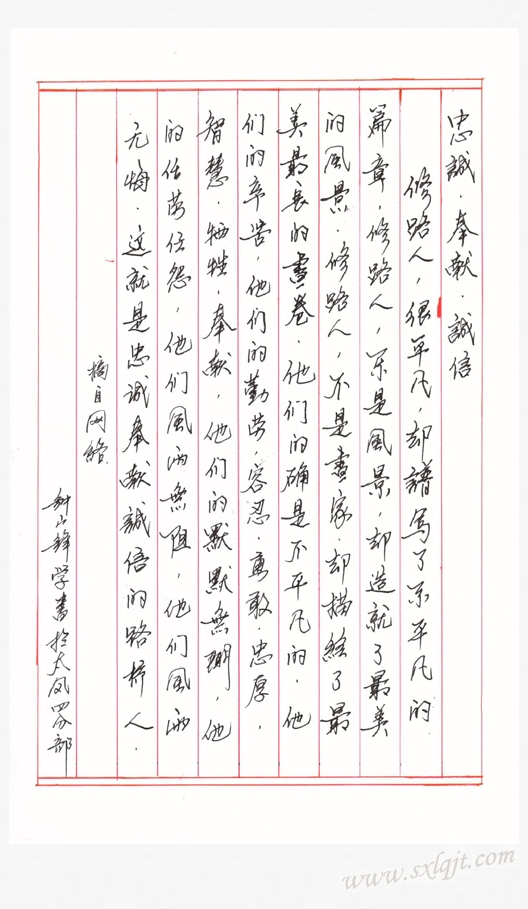 忠誠·奉献·誠信
修路人，很平凡，却譜写了不平凡的
篇章，修路人，不是風景，却造就了最美
的風景·修路人，不是畫家·却描繪了最
美最長的畫卷·他们的确是不平凡的·他
们的辛苦，他们的勤劳，容忍·勇敢·忠厚·
智慧·牺牲，奉献，他们的默默無聞，他
们的任劳任怨，他们風雨無阻，他们風雨
无悔·這就是忠诚奉献誠信的路桥人·
摘自网络
学書於太凤四分部
www.sxlqjt.com